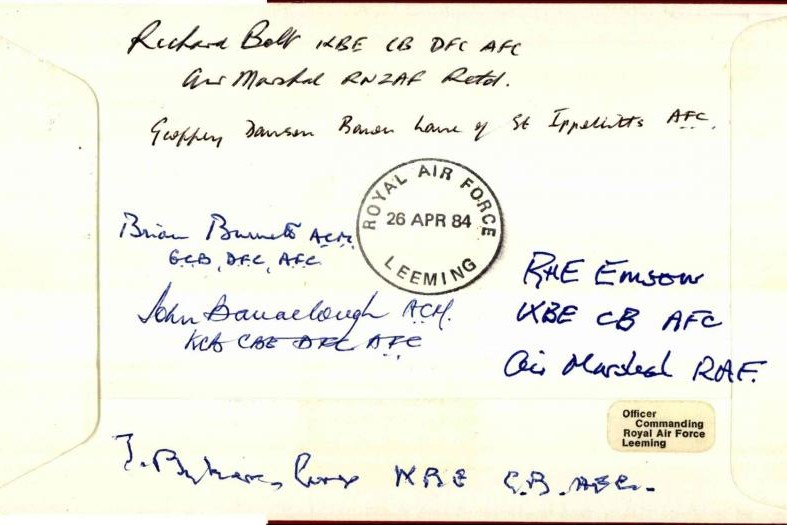 Richard Bolt KBE CB DFC AFC
Air Marshal RNZAF Retd.
Geoffrey Dawson Baron Lane of St Ippollitts AFC.
ROYAL AIR FORCE
26 APR 84
LEEMING
Brian Burnett ACM.
GCB, DFC, AFC
John Barraclough ACM.
KCB CBE DFC AFC
RHE Emson
KBE CB AFC
Air Marshal RAF.
Officer
Commanding
Royal Air Force
Leeming
KBE C.B.